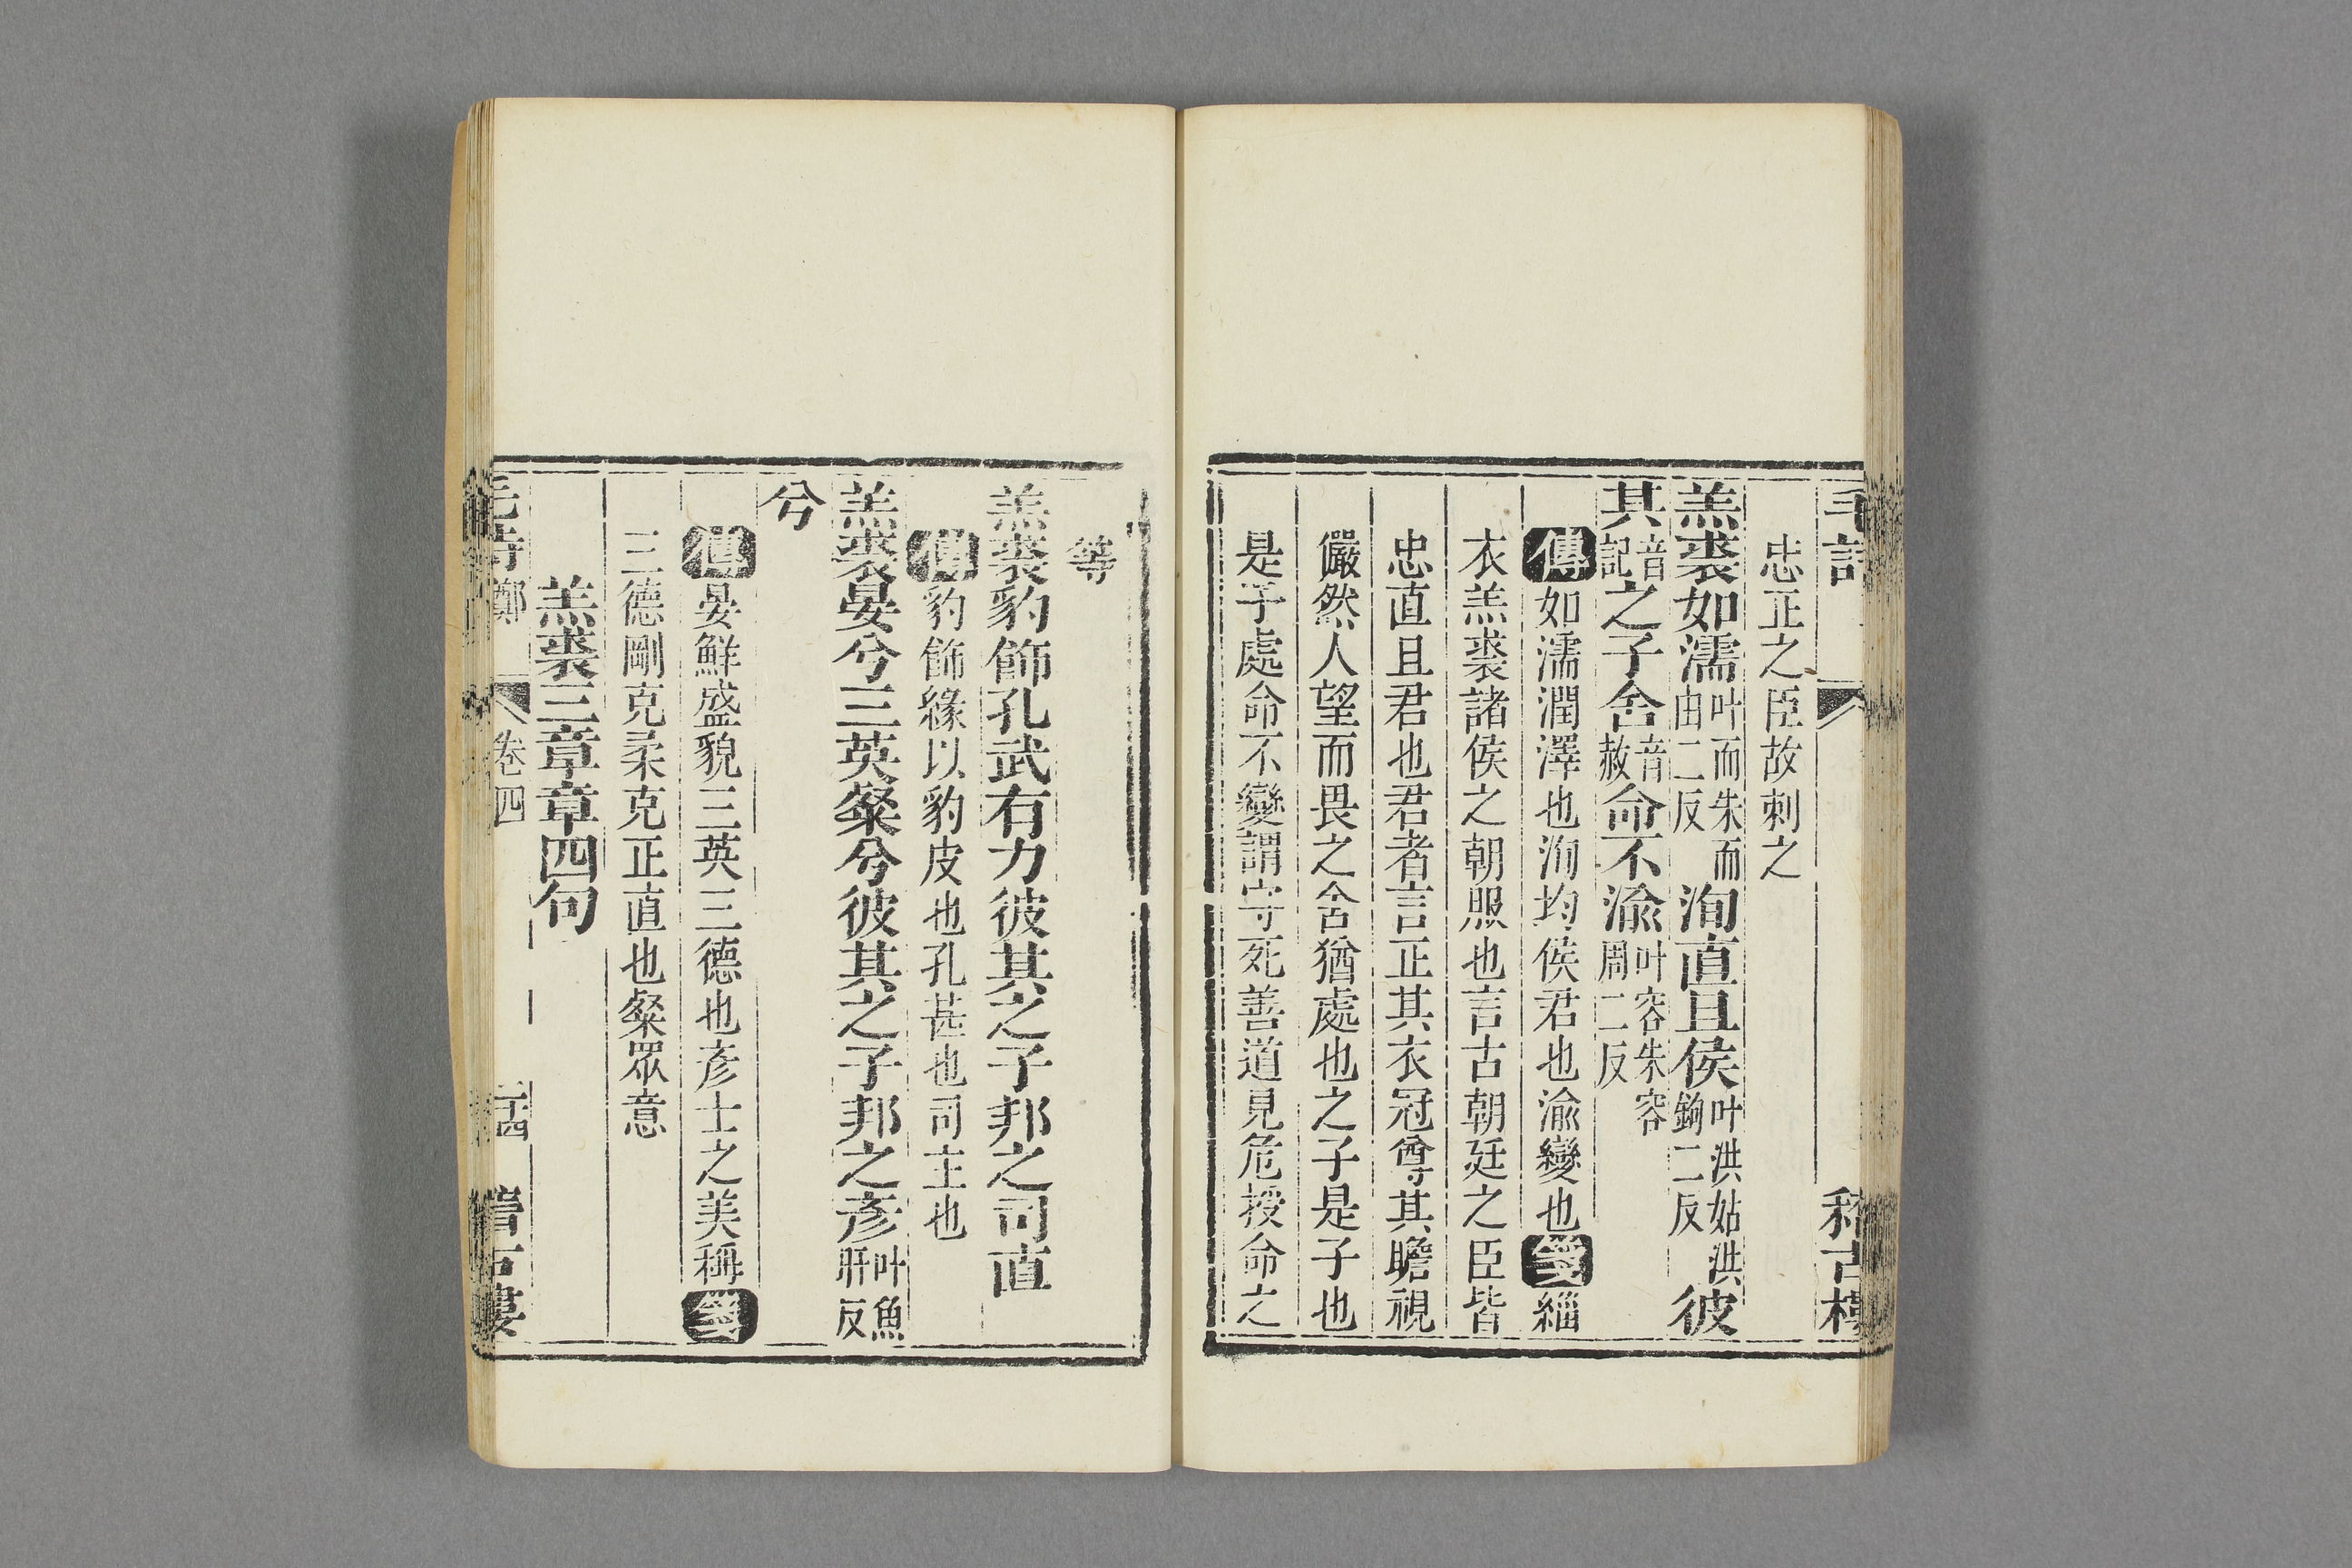 毛詩 稽古樓
忠正之臣故刺之
羔裘如濡叶而朱而由二反洵直且侯叶洪姑洪鉤二反彼
其音記之子舍音赦命不渝叶容朱容周二反
傳如濡潤澤也洵均侯君也渝變也箋緇
衣羔裘諸侯之朝服也言古朝廷之臣皆
忠直且君也君者言正其衣冠尊其瞻視
儼然人望而畏之舍猶處也之子是子也
是子處命不變謂守死善道見危授命之
等
羔裘豹飾孔武有力彼其之子邦之司直
傳豹飾緣以豹皮也孔甚也司主也
羔裘晏兮三英粲兮彼其之子邦之彥叶魚肝反
兮
傳晏鮮盛貌三英三德也彥士之美稱箋
三德剛克柔克正直也粲眾意
羔裘三章章四句
毛詩 鄭 卷四 二十四 稽古樓